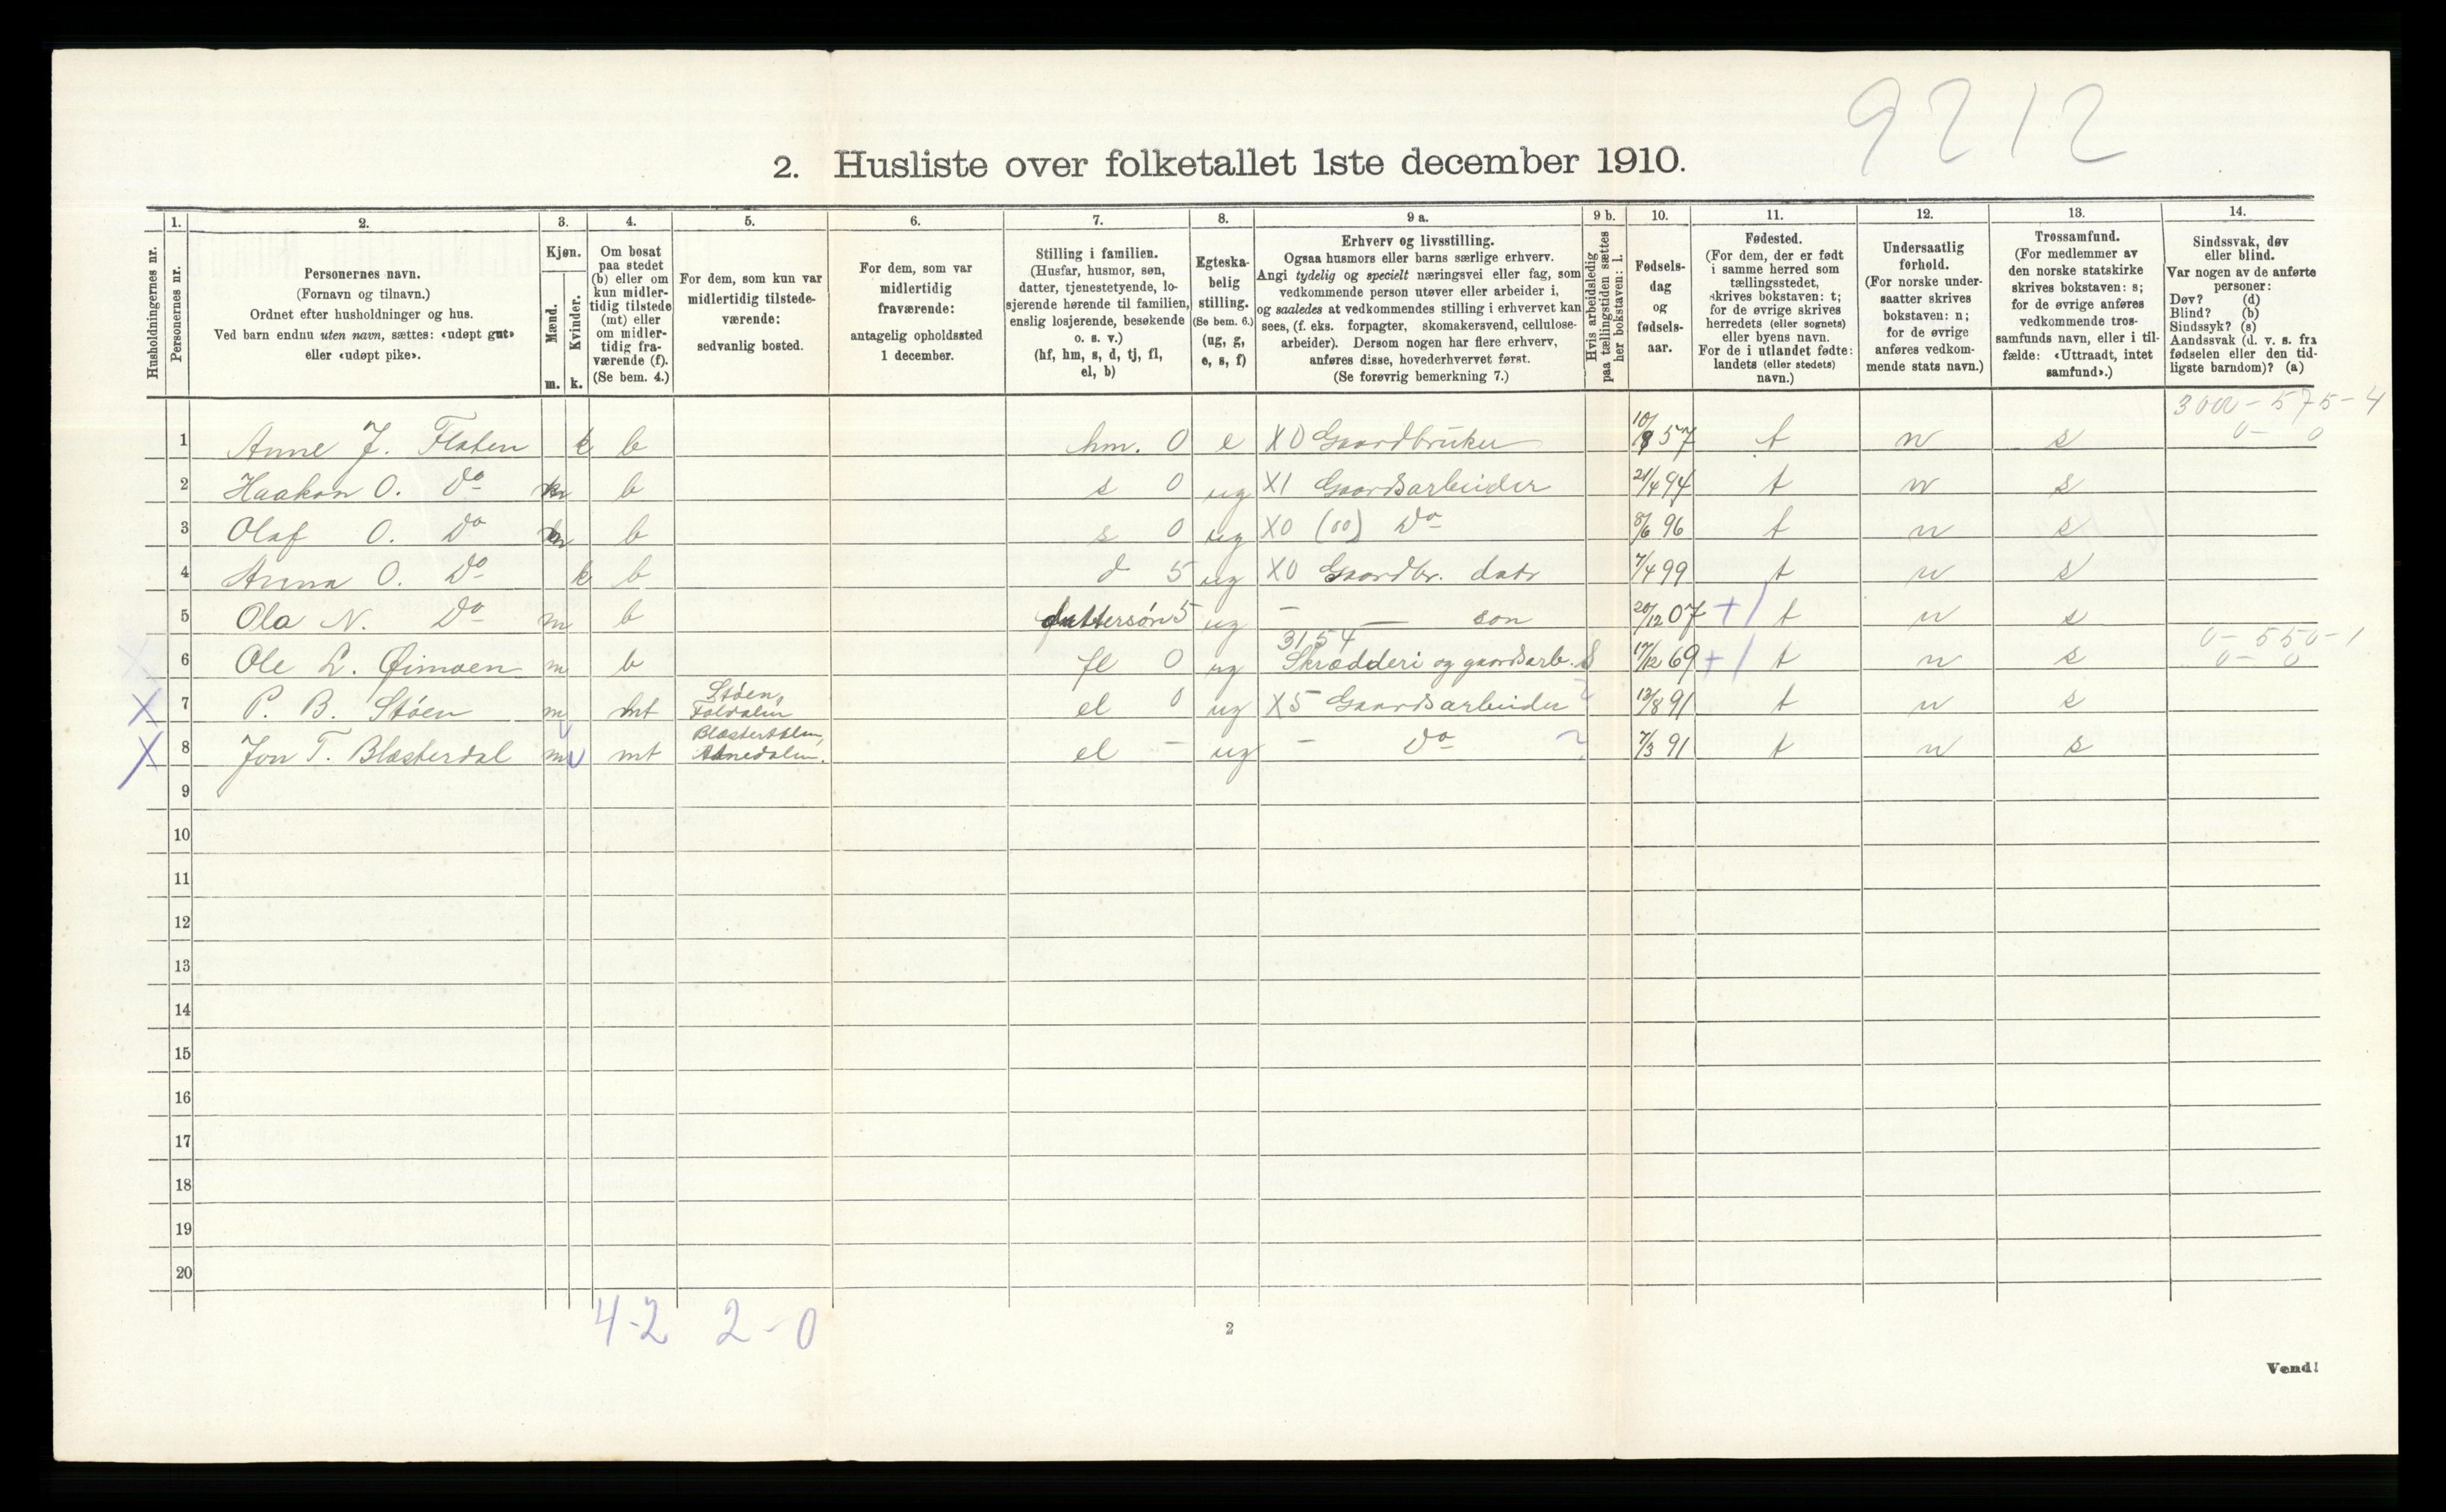 9212
2. Husliste over folketallet 1ste december 1910.
Husholdningernes nr.
1.
Personernes nr.
2.
Personernes navn.
(Fornavn og tilnavn.)
Ordnet efter husholdninger og hus.
Ved barn endnu uten navn, sættes: «udøpt gut»
eller «udøpt pike».
3.
Kjøn.
Mænd.
m.
Kvinder.
k.
4.
Om bosat
paa stedet
(b) eller om
kun midler-
tidig tilstede
(mt) eller
om midler-
tidig fra-
værende (f).
(Se bem. 4.)
5.
For dem, som kun var
midlertidig tilstede-
værende:
sedvanlig bosted.
6.
For dem, som var
midlertidig
fraværende:
antagelig opholdssted
1 december.
7.
Stilling i familien.
(Husfar, husmor, søn,
datter, tjenestetyende, lo-
sjerende hørende til familien,
enslig losjerende, besøkende
o. s. v.)
(hf, hm, s, d, tj, fl,
el, b)
8.
Egteska-
belig
stilling.
(Se bem. 6.)
(ug, g,
e, s, f)
9 a.
Erhverv og livsstilling.
Ogsaa husmors eller barns særlige erhverv.
Angi tydelig og specielt næringsvei eller fag, som
vedkommende person utøver eller arbeider i,
og saaledes at vedkommendes stilling i erhvervet kan
sees, (f. eks. forpagter, skomakersvend, cellulose-
arbeider). Dersom nogen har flere erhverv,
anføres disse, hovederhvervet først.
(Se forøvrig bemerkning 7.)
9 b.
Hvis arbeidsledig
paa tællingstiden sættes
her bokstaven: l.
10.
Fødsels-
dag
og
fødsels-
aar.
11.
Fødested.
(For dem, der er født
i samme herred som
tællingsstedet,
skrives bokstaven: t;
for de øvrige skrives
herredets (eller sognets)
eller byens navn.
For de i utlandet fødte:
landets (eller stedets)
navn.)
12.
Undersaatlig
forhold.
(For norske under-
saatter skrives
bokstaven: n;
for de øvrige
anføres vedkom-
mende stats navn.)
13.
Trossamfund.
(For medlemmer av
den norske statskirke
skrives bokstaven: s;
for de øvrige anføres
vedkommende tros-
samfunds navn, eller i til-
fælde: «Uttraadt, intet
samfund».)
14.
Sindssvak, døv
eller blind.
Var nogen av de anførte
personer:
Døv? (d)
Blind? (b)
Sindssyk? (s)
Aandssvak (d. v. s. fra
fødselen eller den tid-
ligste barndom)? (a)
1 Anne J. Flaten k b hm. 0 e X0 Gaardbruker 57 t n s 0 - 0
2 Haakon O. Do m b s 0 ug X1 Gaardsarbeider 21/4 94 t n s
3 Olaf O. Do m b s 0 ug X0 (00) Do 8/6 96 t n s
4 Anna O. Do k b d 5 ug X0 Gaardbr. datr 7/4 99 t n s
5 Ola N. Do m b dattersøn 5 ug — — søn 20/12 07 +1 t n s
3154 0 - 550 - 1
6 Ole L. Øimoen m b fl 0 ug Skrædderi og gaardsarb. 17/12 69 +1 t n s 0 - 0
X 7 P. B. Støen m mt Støen, Foldalen el 0 ug X5 Gaardsarbeider 13/8 91 t n s
X 8 Jon T. Blæsterdal m mt Blæsterdalen, el - ug - Do 7/3 91 t n s
9
10
11
12
13
14
15
16
17
18
19
20
4-2 2-0
2
Vend!